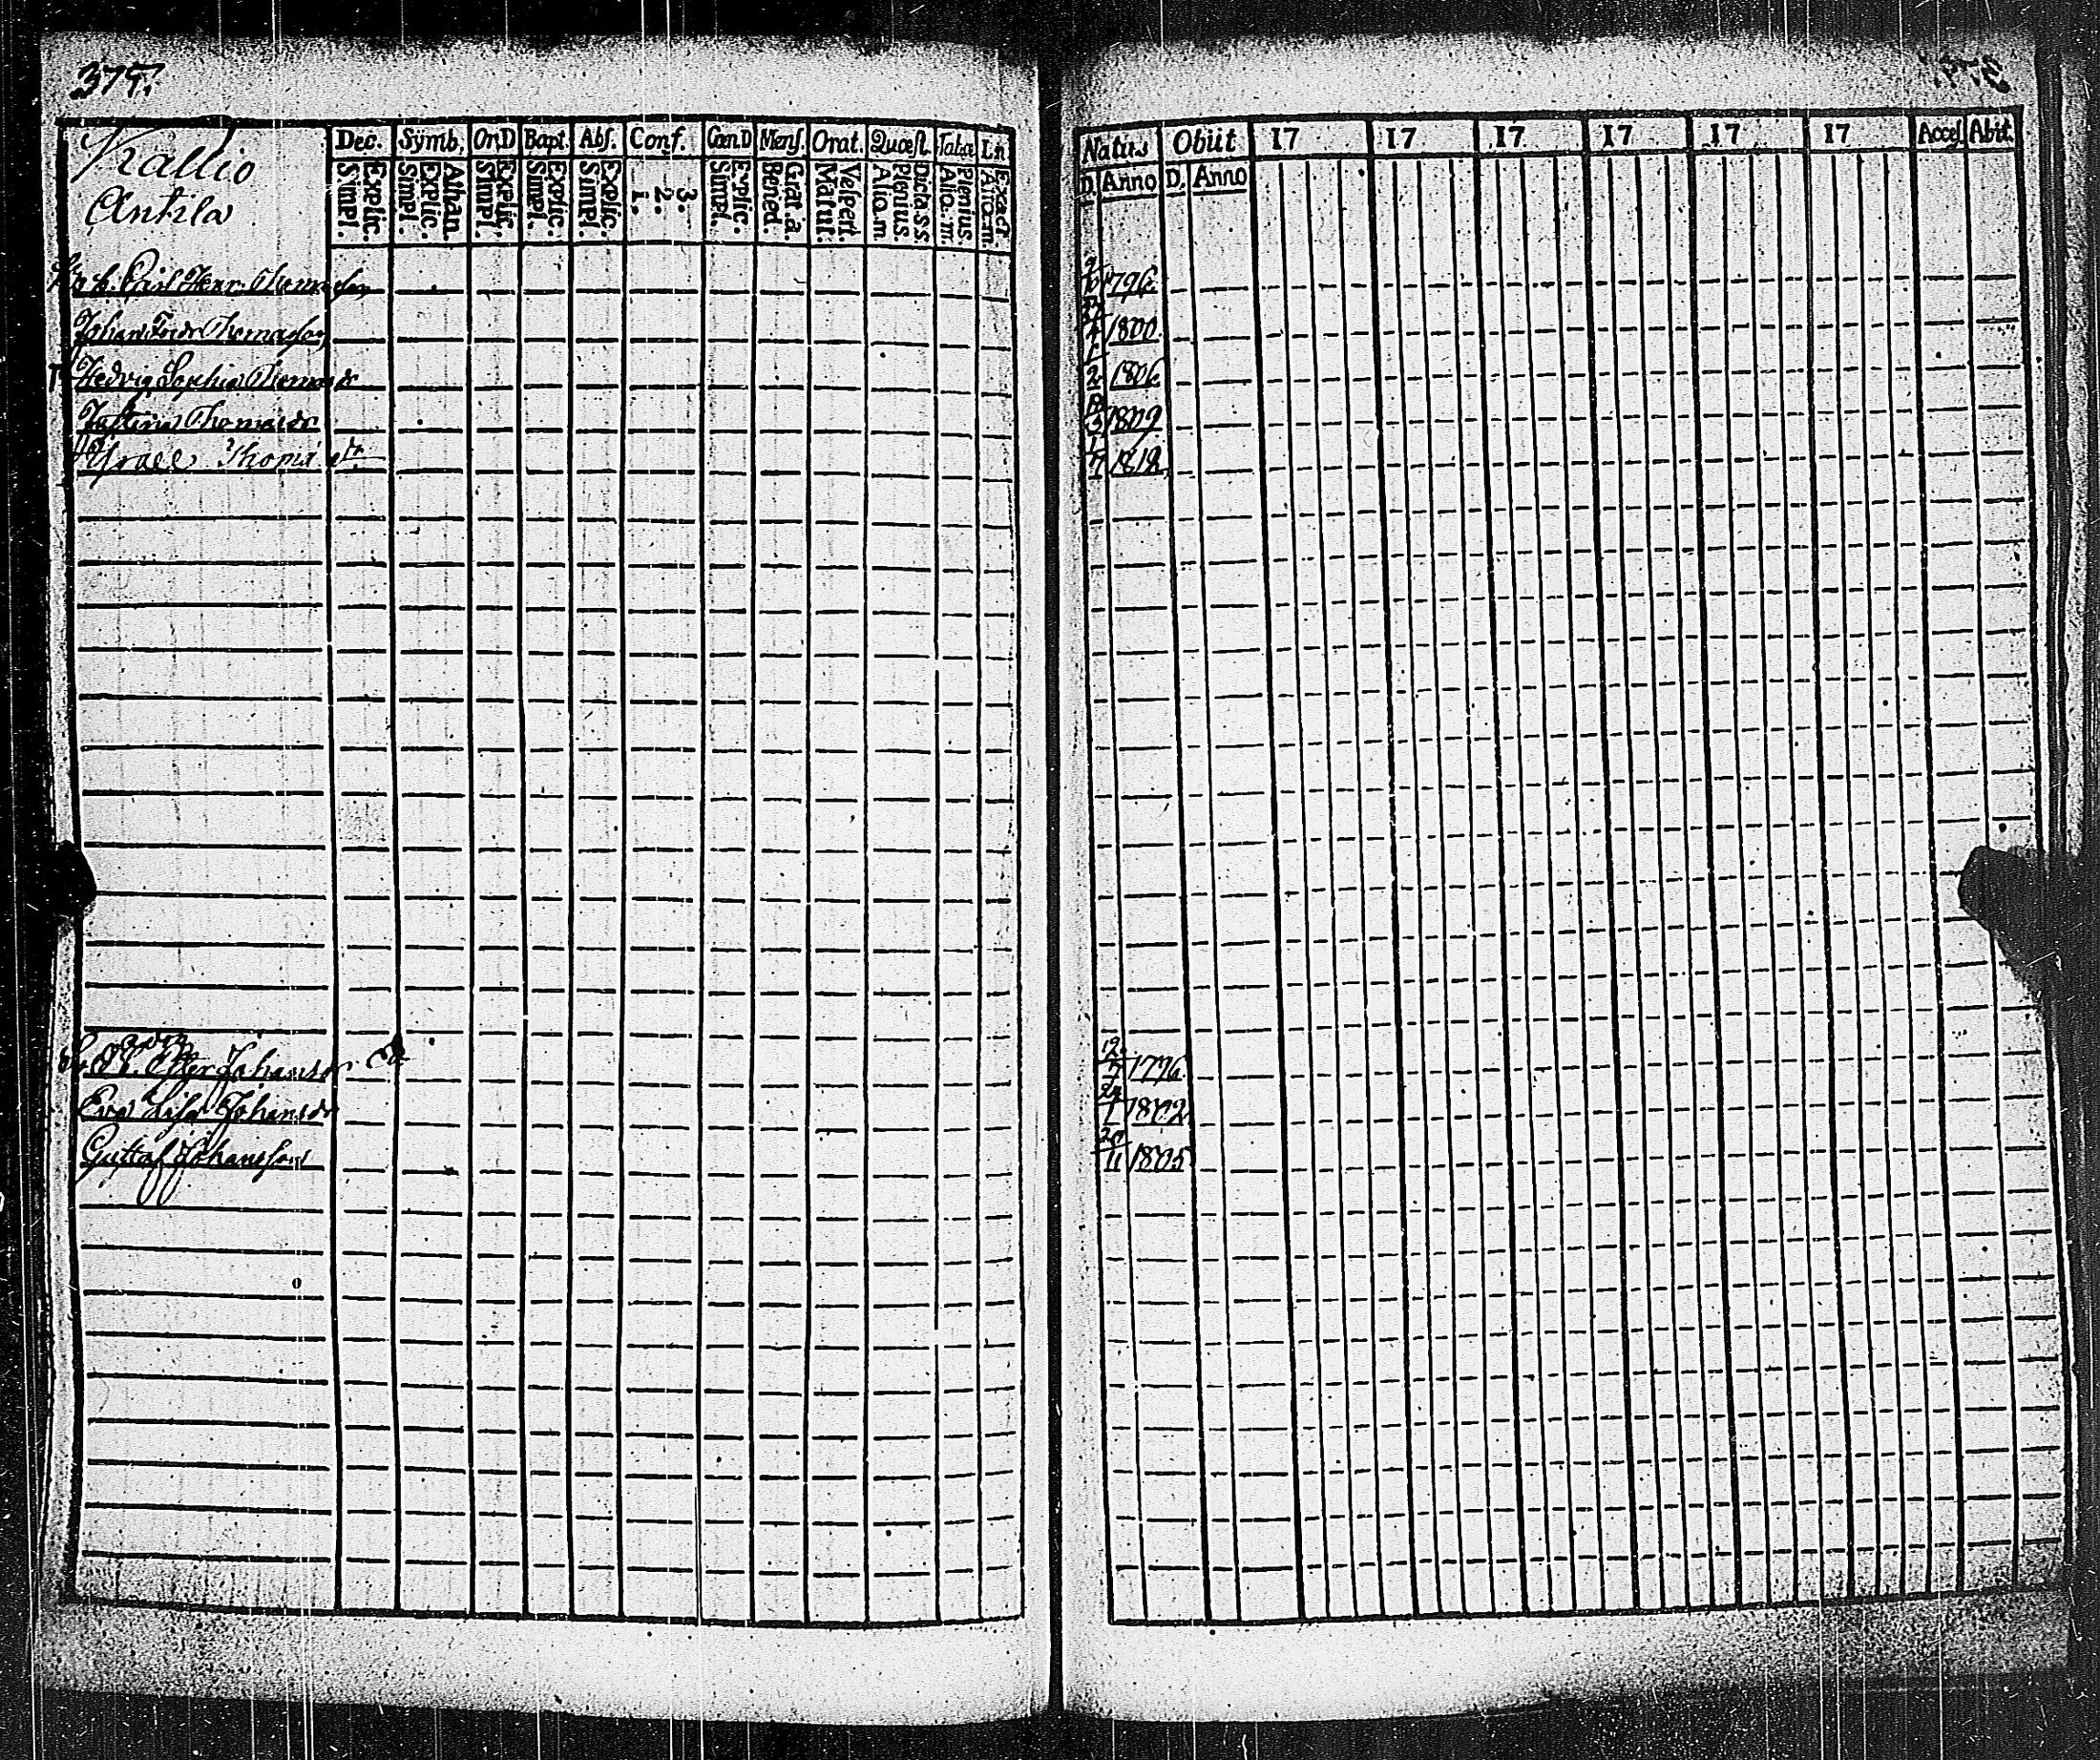 375.
Kallio
Antila
Dec. Symb. Or.D Bapt. Abs. Conf. Cœn.D Mens. Orat. Quæst. Tabæ Ln
Explic. Simpl. Athan. Explic. Simpl. Explic. Simpl. Explic. Simpl. Explic. Simpl. 3. 2. 1. Explic. Simpl. Grat. a. Bened. Vespert. Matut. Dicta s.s. Plenius. Aliq. m. Plenius. Aliq. m. Exact. Aliq. m.
Carl Henr. Thomasson
Johan Fredr Thomasson
Hedvig Sophia Thomasdr
Justina Thomasdr
Thomasdr
Johansdr
Eva Lisa Johansdr
Gustaf Johansson
Natus Obiit 17 17 17 17 17 17 Acces Abiit
D. Anno D. Anno
1796.
1800.
1806.
1809
1812
12/7 1776.
24/1 1802
20/11 1805